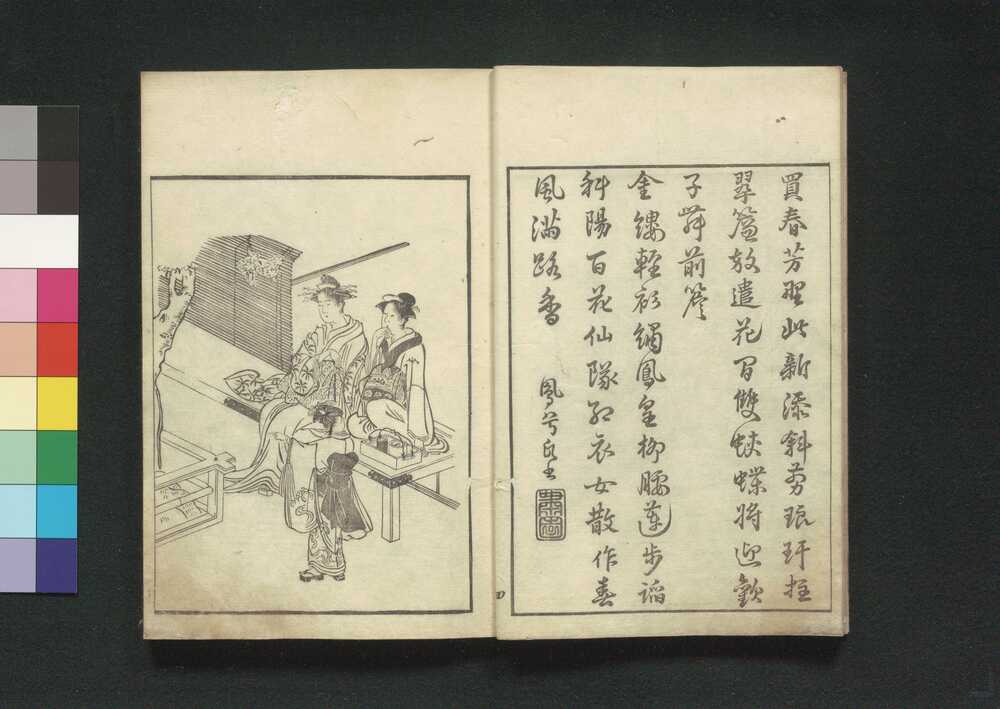 買春芳墅此新添斜剪琅玕拄
翠簾放遣花間雙蛺蝶將迎歡
子舞前簷
金縷輕衫繡鳳皇柳腰蓮步蹈
斜陽百花仙隊紅衣女散作春
風滿路香